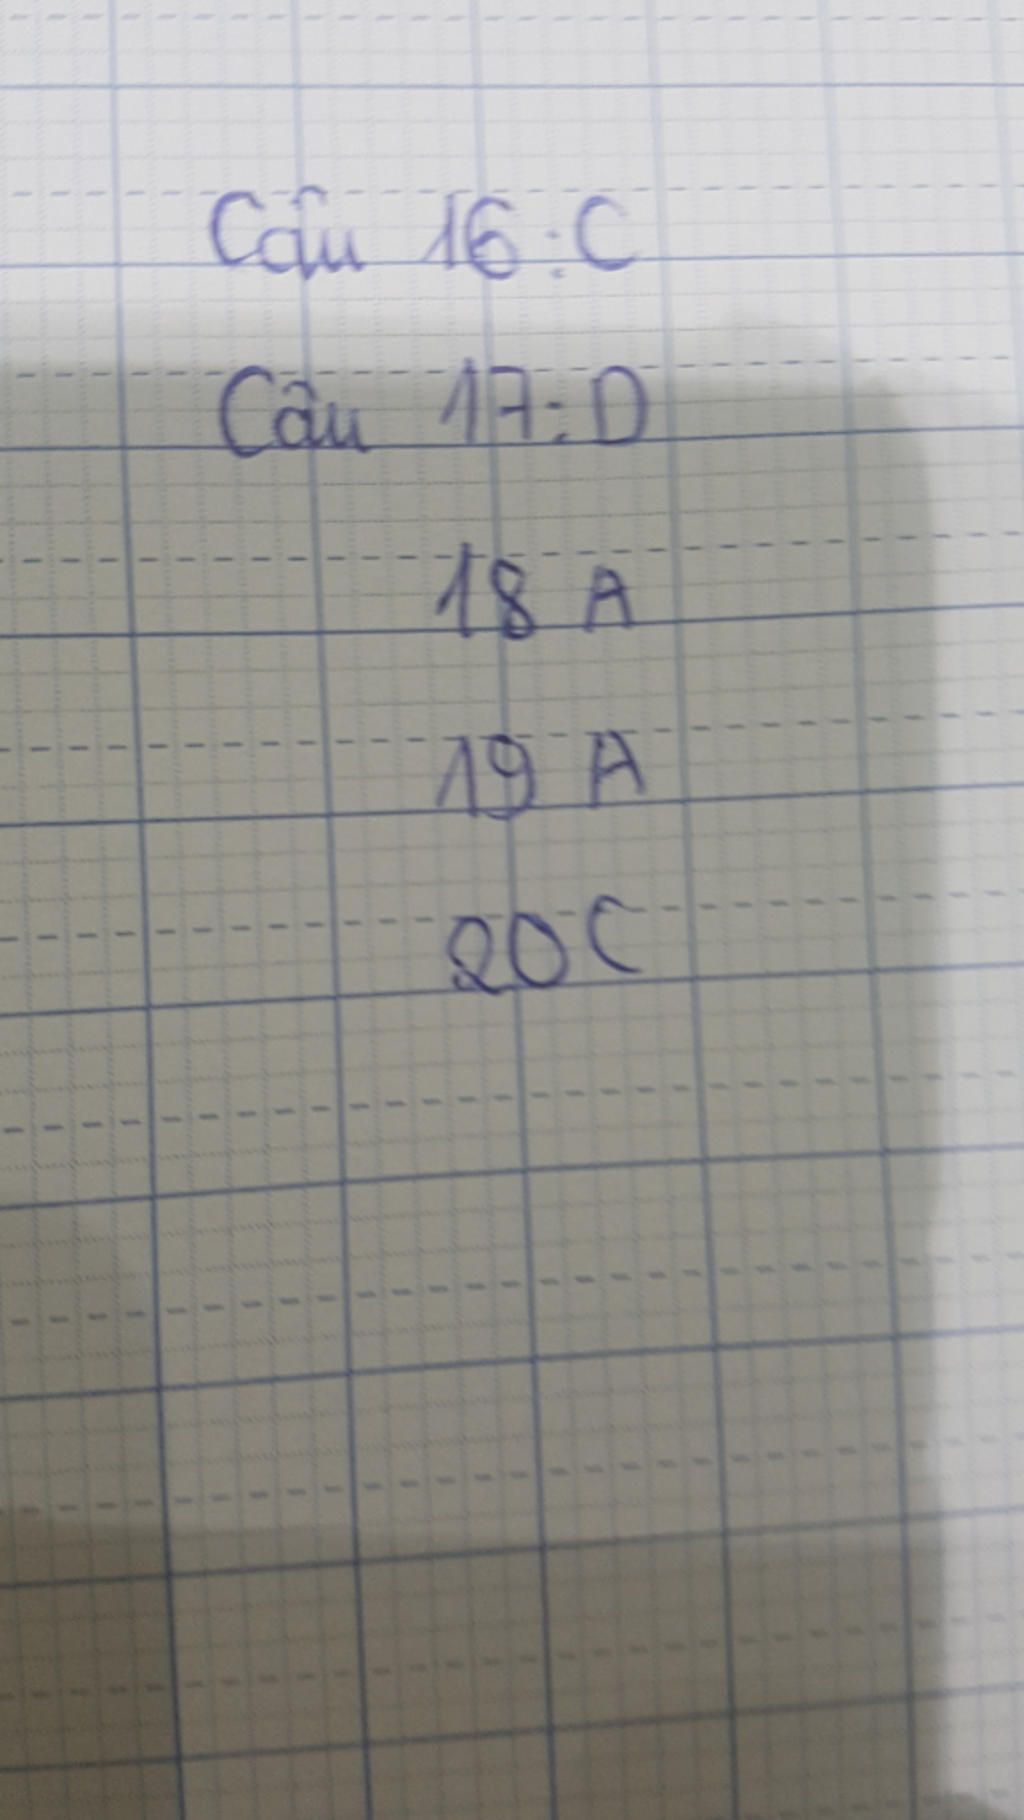 Câu 16: C
Câu 17: D
18 A
19 A
20 C